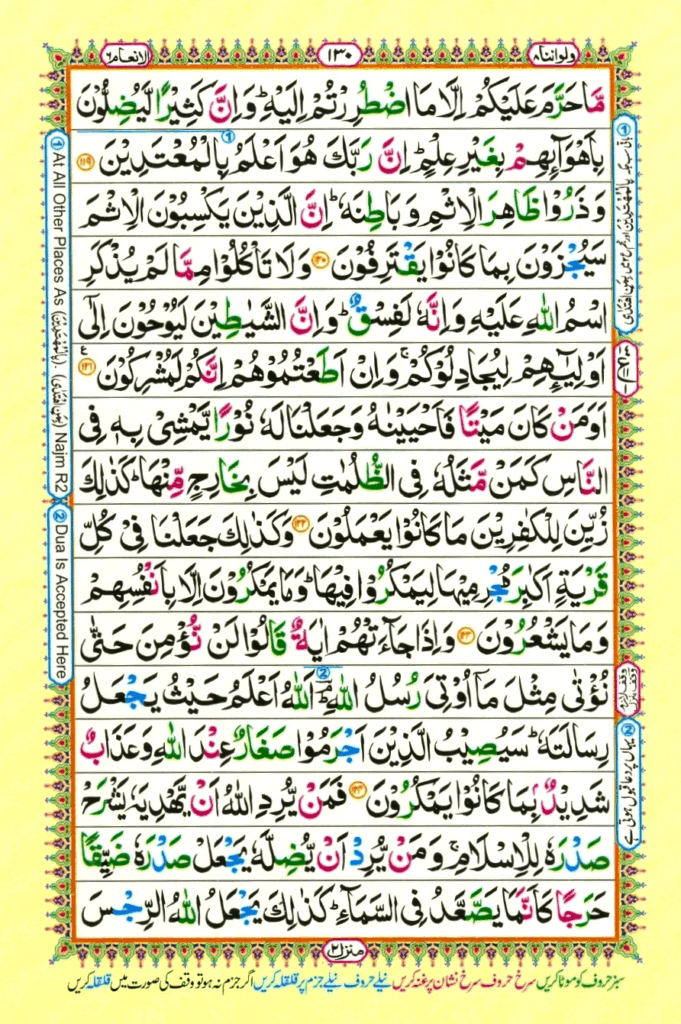 ولواننا ۸
۱۳۰
الانعام ۶
مَّا حَرَّمَ عَلَيْكُمْ اِلَّا مَا اضْطُرِرْتُمْ اِلَيْهِ ؕ وَاِنَّ كَثِيْرًا لَّيُضِلُّوْنَ
بِاَهْوَآئِهِمْ بِغَيْرِ عِلْمٍ ؕ اِنَّ رَبَّكَ هُوَ اَعْلَمُ بِالْمُعْتَدِيْنَ ﴿۱۱۹﴾
وَذَرُوْا ظَاهِرَ الْاِثْمِ وَبَاطِنَهٗ ؕ اِنَّ الَّذِيْنَ يَكْسِبُوْنَ الْاِثْمَ
سَيُجْزَوْنَ بِمَا كَانُوْا يَقْتَرِفُوْنَ ﴿۱۲۰﴾ وَلَا تَاْكُلُوْا مِمَّا لَمْ يُذْكَرِ
اسْمُ اللّٰهِ عَلَيْهِ وَاِنَّهٗ لَفِسْقٌ ؕ وَاِنَّ الشَّيٰطِيْنَ لَيُوْحُوْنَ اِلٰٓى
اَوْلِيٰٓئِهِمْ لِيُجَادِلُوْكُمْ ۚ وَاِنْ اَطَعْتُمُوْهُمْ اِنَّكُمْ لَمُشْرِكُوْنَ ﴿۱۲۱﴾
اَوَمَنْ كَانَ مَيْتًا فَاَحْيَيْنٰهُ وَجَعَلْنَا لَهٗ نُوْرًا يَّمْشِىْ بِهٖ فِى
النَّاسِ كَمَنْ مَّثَلُهٗ فِى الظُّلُمٰتِ لَيْسَ بِخَارِجٍ مِّنْهَا ؕ كَذٰلِكَ
زُيِّنَ لِلْكٰفِرِيْنَ مَا كَانُوْا يَعْمَلُوْنَ ﴿۱۲۲﴾ وَكَذٰلِكَ جَعَلْنَا فِىْ كُلِّ
قَرْيَةٍ اَكٰبِرَ مُجْرِمِيْهَا لِيَمْكُرُوْا فِيْهَا ؕ وَمَا يَمْكُرُوْنَ اِلَّا بِاَنْفُسِهِمْ
وَمَا يَشْعُرُوْنَ ﴿۱۲۳﴾ وَاِذَا جَآءَتْهُمْ اٰيَةٌ قَالُوْا لَنْ نُّؤْمِنَ حَتّٰى
نُؤْتٰى مِثْلَ مَاۤ اُوْتِىَ رُسُلُ اللّٰهِ ؔۘ اَللّٰهُ اَعْلَمُ حَيْثُ يَجْعَلُ
رِسَالَتَهٗ ؕ سَيُصِيْبُ الَّذِيْنَ اَجْرَمُوْا صَغَارٌ عِنْدَ اللّٰهِ وَعَذَابٌ
شَدِيْدٌۢ بِمَا كَانُوْا يَمْكُرُوْنَ ﴿۱۲۴﴾ فَمَنْ يُّرِدِ اللّٰهُ اَنْ يَّهْدِيَهٗ يَشْرَحْ
صَدْرَهٗ لِلْاِسْلَامِ ۚ وَمَنْ يُّرِدْ اَنْ يُّضِلَّهٗ يَجْعَلْ صَدْرَهٗ ضَيِّقًا
حَرَجًا كَاَنَّمَا يَصَّعَّدُ فِى السَّمَآءِ ؕ كَذٰلِكَ يَجْعَلُ اللّٰهُ الرِّجْسَ
منزل ۲
سبز حروف کو موٹا کریں سرخ حروف سرخ نشان پر غنہ کریں نیلے حروف نیلے جزم پر قلقلہ کریں اگر جزم نہ ہو تو وقف کی صورت میں قلقلہ کریں
① At All Other Places As (بِالْمُهْتَدِيْنَ). (بِمَنِ اهْتَدٰى) Najm R2
② Dua Is Accepted Here
② یہاں پر دعا قبول ہوتی ہے